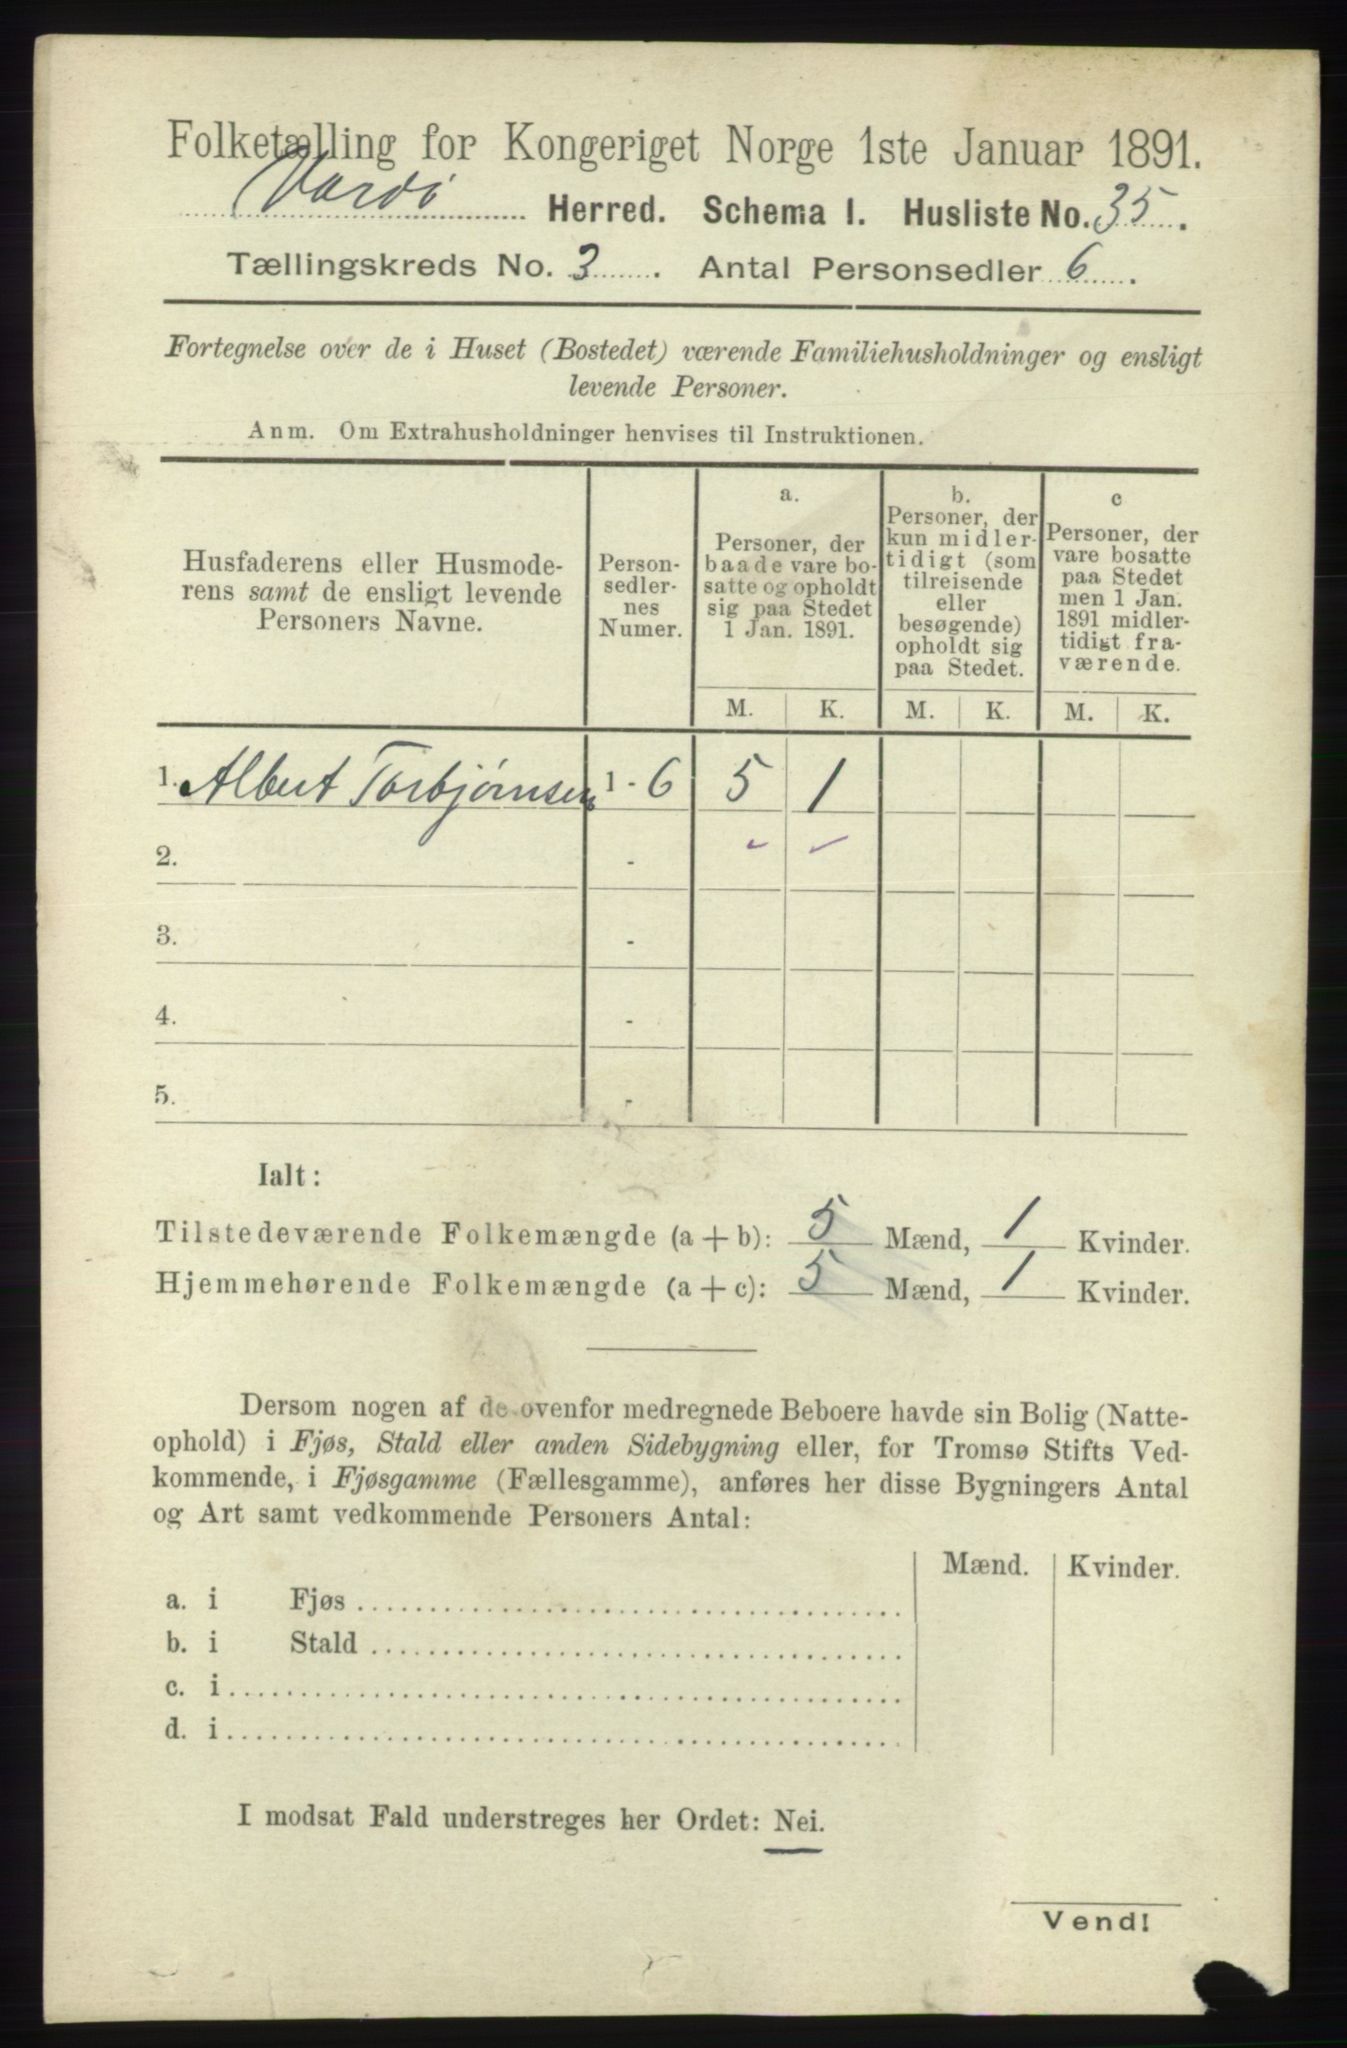 Folketælling for Kongeriget Norge 1ste Januar 1891.
Vardö Herred. Schema I. Husliste No. 35.
Tællingskreds No. 3. Antal Personsedler 6.
Fortegnelse over de i Huset (Bostedet) værende Familiehusholdninger og ensligt
levende Personer.
Anm. Om Extrahusholdninger henvises til Instruktionen.
Husfaderens eller Husmode-
rens samt de ensligt levende
Personers Navne.
Person-
sedler-
nes
Numer.
a.
Personer, der
baade vare bo-
satte og opholdt
sig paa Stedet
1 Jan. 1891.
b.
Personer, der
kun midler-
tidigt (som
tilreisende
eller
besøgende)
opholdt sig
paa Stedet.
c
Personer, der
vare bosatte
paa Stedet
men 1 Jan.
1891 midler-
tidigt fra-
værende.
M. K. M. K. M. K.
1. Albert Torbjørnsen 1 - 6 5 1
2. -
3. -
4. -
5. -
Ialt:
Tilstedeværende Folkemængde (a + b): 5 Mænd, 1 Kvinder.
Hjemmehørende Folkemængde (a + c): 5 Mænd, 1 Kvinder.
Dersom nogen af de ovenfor medregnede Beboere havde sin Bolig (Natte-
ophold) i Fjøs, Stald eller anden Sidebygning eller, for Tromsø Stifts Ved-
kommende, i Fjøsgamme (Fællesgamme), anføres her disse Bygningers Antal
og Art samt vedkommende Personers Antal:
Mænd. Kvinder.
a. i Fjøs
b. i Stald
c. i
d. i
I modsat Fald understreges her Ordet: Nei.
Vend!